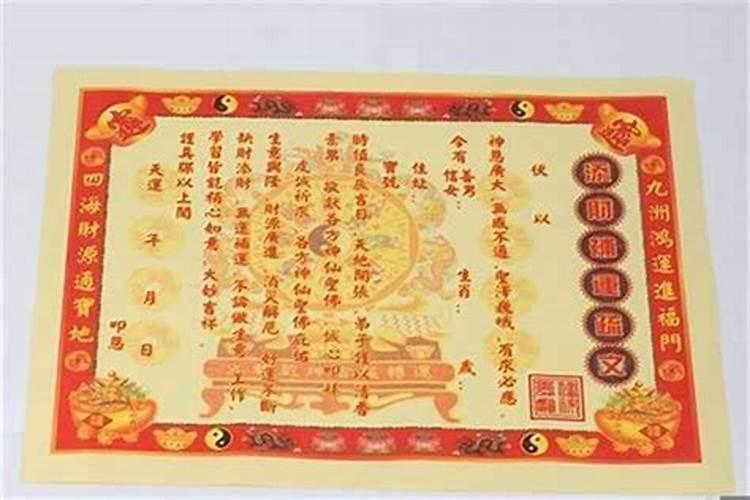 九洲鴻運進福門
添財補運疏文
伏以
神恩廣大 無感不通 聖澤巍峨 有求必應
今有 善男 信女： 生肖： 歲：
住址：
寶號：
時值良辰吉日 天地開張 弟子僅以清香
素果 敬獻各方神仙聖佛 誠心叩拜
虔誠祈求 各方神仙聖佛庇佑
生意興隆 財源廣進 消災解厄 好運不斷
缺財添財 無運補運 不論做生意、工作、
學習皆能稱心如意 大妙吉祥。
謹具牒以上聞
天運 年 月 日 叩恩
四海財源通寶地